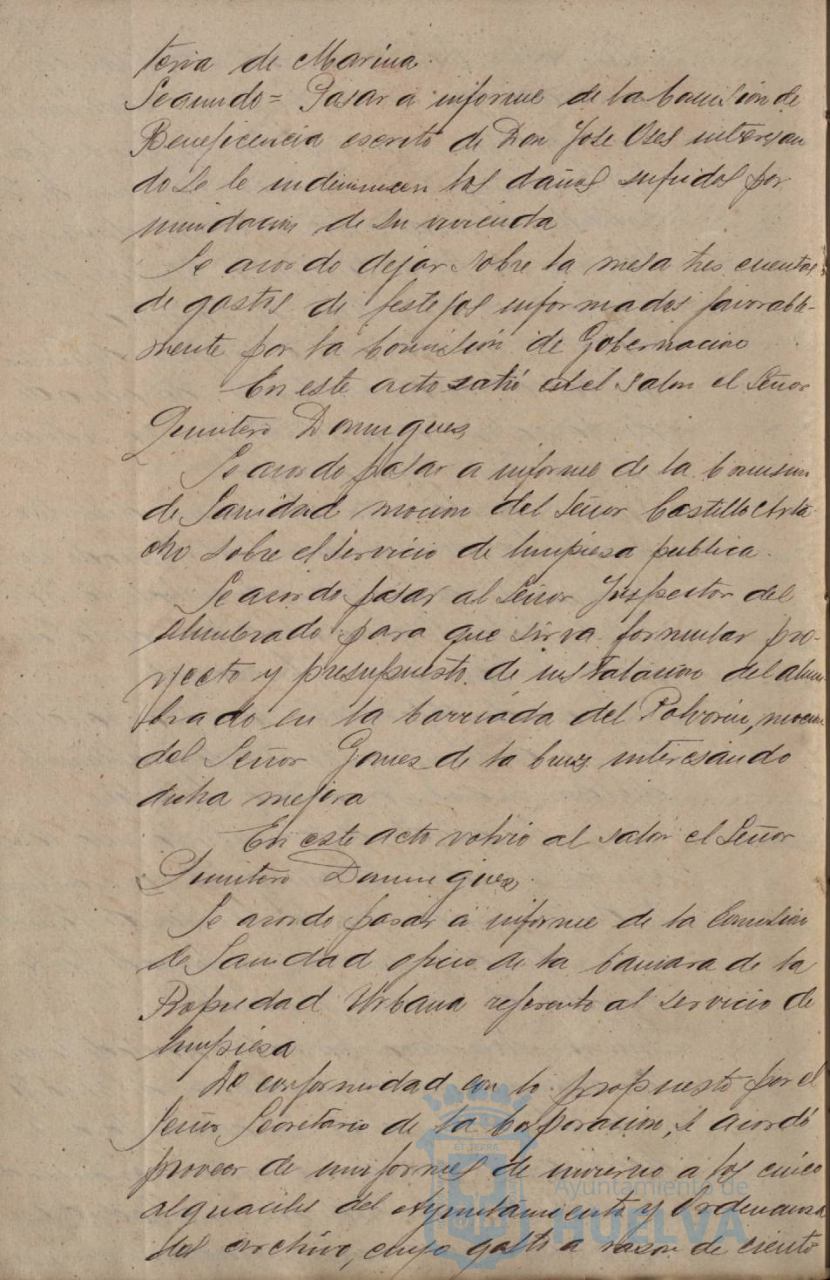 teria de Marina.
Segundo = Pasar a informe de la Comisión de
Beneficencia escrito de Don Jose Oses interesan
do se le indemnicen los daños sufridos por
inundacion de su vivienda
Se acordo dejar sobre la mesa tres cuentas
de gastos de festejos informados favorable-
mente por la Comisión de Gobernacion
En este acto salió del salon el Señor
Quintero Dominguez
Se acordo pasar a informe de la Comision
de Sanidad mocion del Señor Castillo Arta
cho sobre el servicio de limpiesa publica.
Se acordo pasar al Señor Inspector del
Alumbrado para que sirva formular pro-
yecto y presupuesto de instalacion del alum
brado en la barriada del Polvorin, mocion
del Señor Gomez de la Cruz interesando
dicha mejora
En este acto volvio al salón el Señor
Quintero Dominguez.
Se acordo pasar a informe de la Comision
de Sanidad oficio de la Camara de la
Propiedad Urbana referente al servicio de
limpiesa
De conformidad con lo propuesto por el
Señor Secretario de la Corporacion, se acordó
proveer de uniformes de invierno a los cinco
alguaciles del Ayuntamiento y Ordenanza
del archivo, cuyo gasto a razon de ciento
Ayuntamiento de
HUELVA